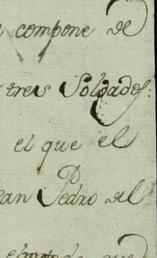 compone de
tres Soldados:
el que el
Pedro del